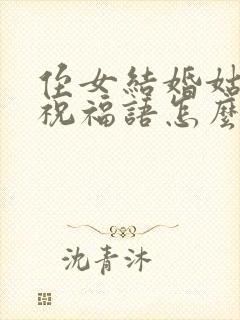 侄女結婚姑
祝福語怎麼
沈青沐